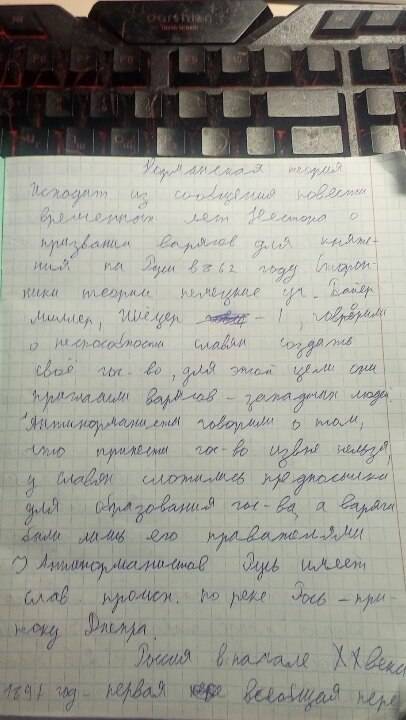 Норманская теория
Исходит из сообщения повести
временных лет Нестора о
призвании варягов для княже-
ния на Руси в 862 году Сторон-
ники теории немецкие уч. Байер
Миллер, Шлёцер - 1, говорили
о неспособности славян создать
своё гос-во, для этой цели они
пригласили варягов - западных людей.
Антинорманисты говорили о том,
что принести гос-во извне нельзя,
у славян сложились предпосылки
для образования гос-ва, а варяги
были лишь его правителями
) Антинорманистов Русь имеет
слав. происх. по реке Рось - при-
току Днепра.
Россия в начале XX века
1897 год - первая всеобщая пере